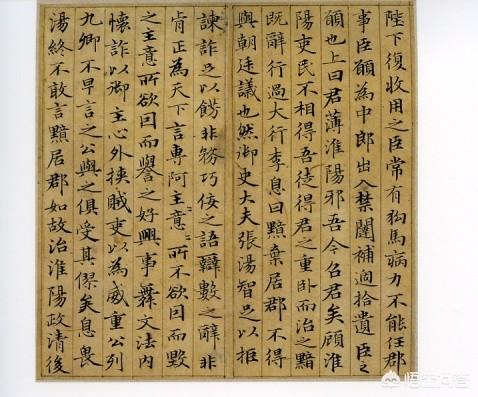 陛下復收用之臣常有狗馬病力不能任郡
事臣願為中郎出入禁闥補過拾遺臣之
願也上曰君薄淮陽邪吾今召君矣顧淮
陽吏民不相得吾徒得君之重臥而治之黯
既辭行過大行李息曰黯棄居郡不得
與朝廷議也然御史大夫張湯智足以拒
諫詐足以飾非務巧佞之語辯數之辭非
肯正為天下言專阿主意〻所不欲因而毀
之主意所欲因而譽之好興事舞文法內
懷詐以御主心外挾賊吏以為威重公列
九卿不早言之公與之俱受其僇矣息畏
湯終不敢言黯居郡如故治淮陽政清後
悟空问答